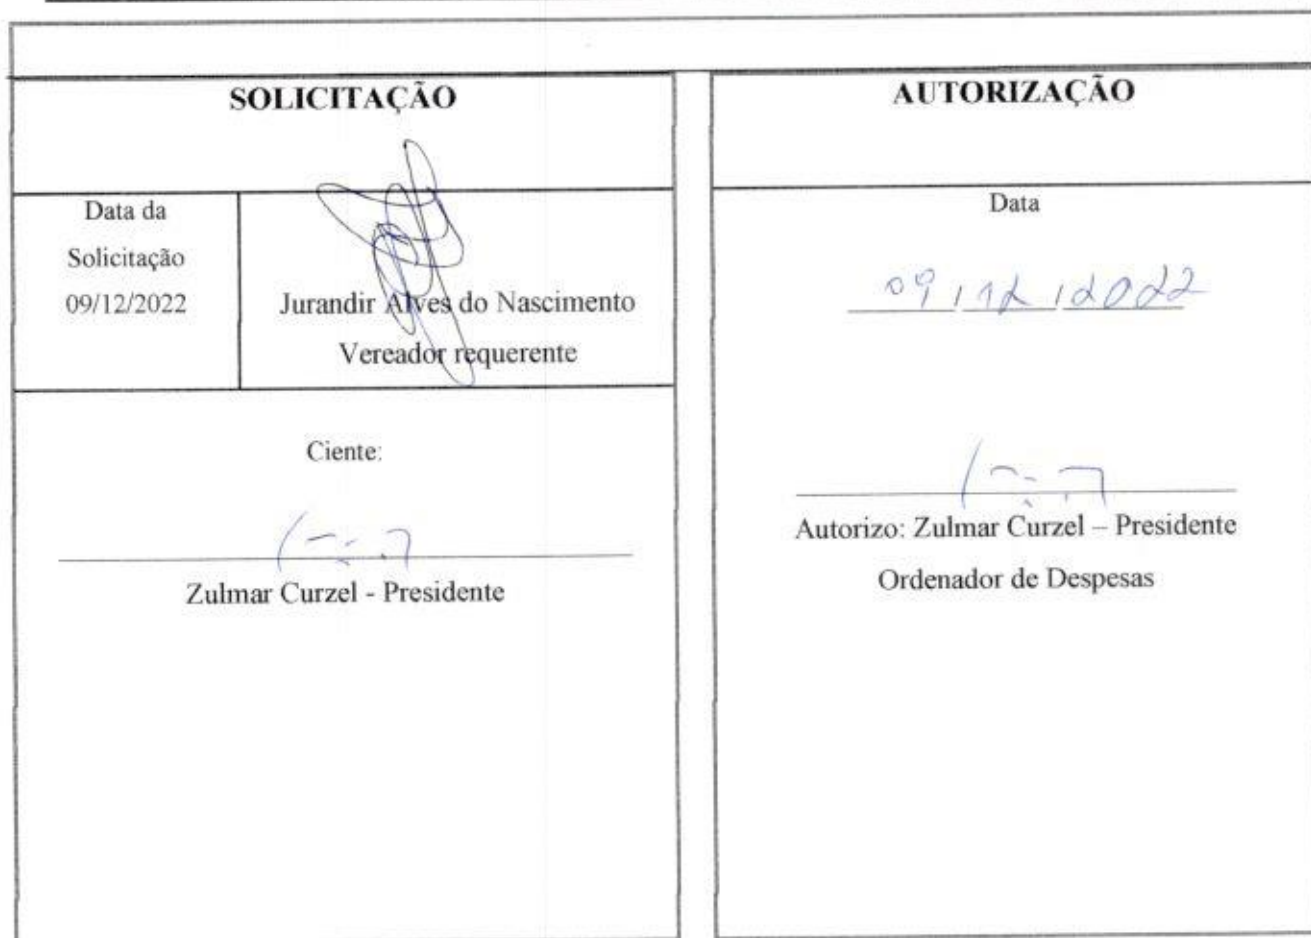 SOLICITAÇÃO
Data da
Solicitação
09/12/2022
Jurandir Alves do Nascimento
Vereador requerente
Ciente:
Zulmar Curzel - Presidente
AUTORIZAÇÃO
Data
09/12/2022
Autorizo: Zulmar Curzel – Presidente
Ordenador de Despesas